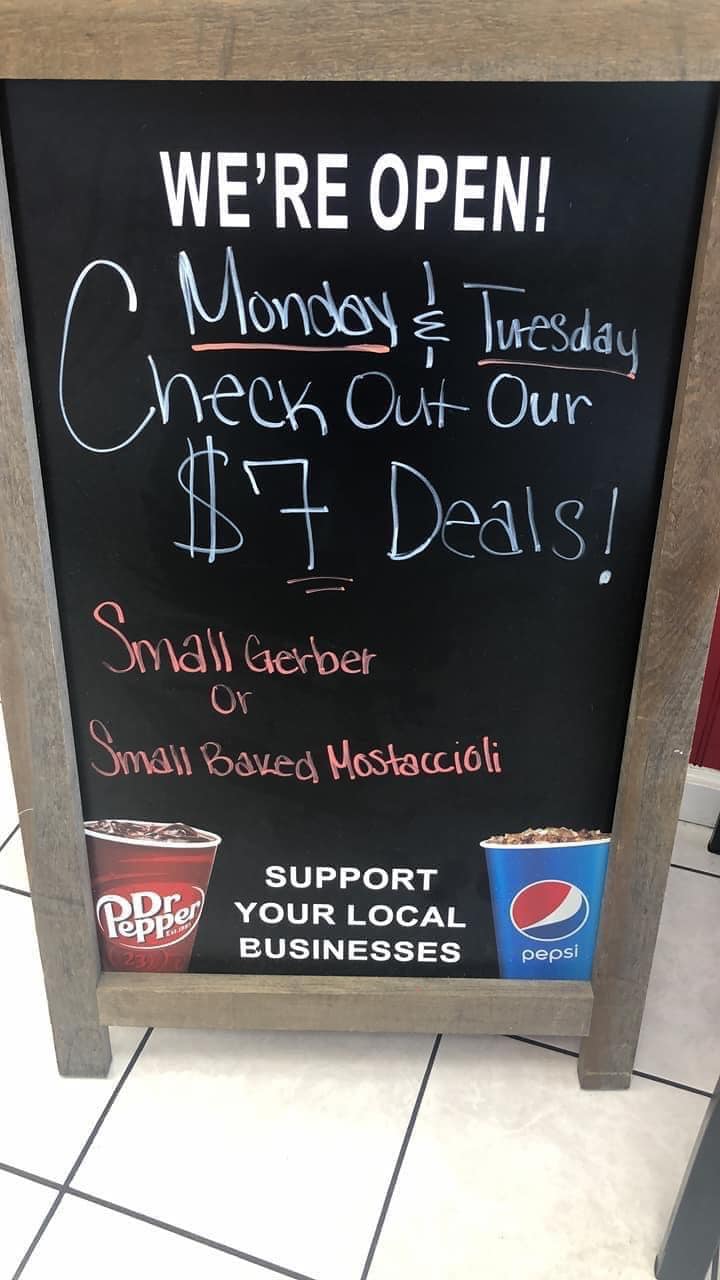 WE'RE OPEN!
Monday & Tuesday
Check Out Our
$7 Deals!
Small Gerber
Or
Small Baked Mostaccioli
Dr
Pepper
EST. 1885
23
SUPPORT
YOUR LOCAL
BUSINESSES
pepsi